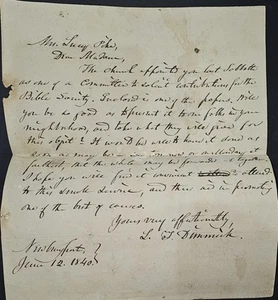 Mrs. Lucy Pike,
Dear Madam,
The church appointed you last Sabbath
as one of a Committee to solicit contributions for the
Bible Society. Enclosed is one of the papers. Will
you be so good as to present it to our folks in your
neighborhood, and take what they will give for
this object? It would be well to have it done as
soon as may be
farthest, that the whole may be forwarded together
I hope you will find it convenient to attend
to this small service, and thus aid in promoting
one of the best of causes.
Yours very affectionately
L. F. Dimmick
Newburyport,
June 12. 1840.